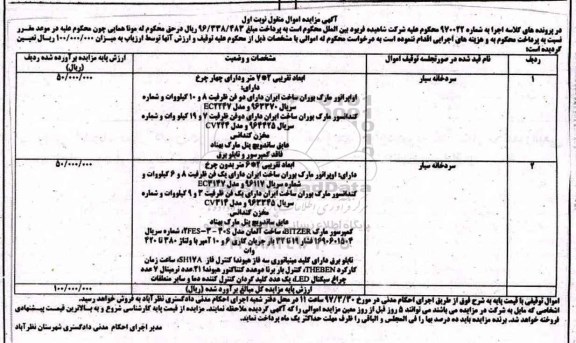 آگهی مزایده اموال منقول نوبت اول
در پرونده های کلاسه اجرا به شماره ۹۷۰۰۲۲ محکوم علیه شرکت شاهیده فربود بین الملل محکوم است به پرداخت مبلغ ۹۶/۳۳۸/۴۸۳ ریال درحق محکوم له مونا همایی چون محکوم علیه در موعد مقرر
نسبت به پرداخت محکوم به و هزینه های اجرایی اقدام ننموده است به درخواست محکوم له اموالی با مشخصات ذیل از محکوم علیه توقیف و ارزش آنها توسط ارزیاب به میزان ۱۰۰/۰۰۰/۰۰۰ ریال تعیین
گردیده است:
ردیف
نام قید شده در صورتجلسه توقیف اموال
مشخصات و وضعیت
ارزش پایه مزایده برآورده شده ردیف (ریال)
۱
سردخانه سیار
۵۰/۰۰۰/۰۰۰
ابعاد تقریبی ۲*۷ متر ودارای چهار چرخ
دارای:
اواپراتور مارک بوران ساخت ایران دارای دو فن ظرفیت ۸ و ۱۰ کیلووات و شماره
سریال ۹۶۳۳۷۰ و مدل EC۲۲۴۷
کندانسور مارک بوران ساخت ایران دارای دوفن ظرفیت ۷ و ۱۹ کیلو وات و شماره
سریال ۹۶۴۴۲۵ و مدل CV۲۲۴
مخزن گندانس
عایق ساندویچ پنل مارک بهناد
فاقد کمپرسور و تابلو برق
۲
سردخانه سیار
۵۰/۰۰۰/۰۰۰
ابعاد تقریبی ۲*۶ متر بدون چرخ
دارای: اوپراتور مارک بوران ساخت ایران دارای یک فن ظرفیت ۸ و ۶ کیلووات و
شماره سریال ۹۶۱۱۷ و مدل EC۳۱۴۷
کندانسور بوران ساخت ایران دارای یک فن ظرفیت ۳ و ۹ کیلووات و شماره
سریال ۹۶۳۲۴۵ و مدل CV۳۱۴
مخزن گندانس
عایق ساندویچ پنل مارک بهناد
کمپرسور مارک BITZER، ساخت آلمان مدل ۲FES-۳-۴۰S، شماره سریال
۱۶۹۰۶۰۱۵۰۴ فشار ۱۹ تا ۳۲ بار جریان کاری ۶ و ۱۰ آمپر با ولتاژ ۳۸۰ تا ۴۲۰
وات
تابلو برق دارای کلید مینیاتوری سه فاز هیوندا کنترل فاز SH۱۷۸، ساعت زمان
کارکرد THEBEN، کنترل بار برنا دوعدد کنتاکتور هیوندا ۲۱ عدد ترمینال ۷ عدد
چراغ سیگنال LED، یک عدد کلید گردان کنترل کننده دما و سایر متعلقات
ارزش پایه مزایده کل مبالغ برآورد شده (ریال)
۱۰۰/۰۰۰/۰۰۰
اموال توقیفی با قیمت پایه به شرح فوق از طریق اجرای احکام مدنی در مورخ ۹۷/۳/۳۰ ساعت ۱۱ در محل دفتر شعبه اجرای احکام مدنی دادگستری نظرآباد به فروش خواهد رسید.
اشخاصی که مایل به شرکت در مزایده می باشند می توانند ۵ روز قبل از روز معین مزایده اموالی را که آگهی گردیده ملاحظه نمایند. مزایده از قیمت پایه کارشناسی شروع و به بالاترین قیمت پیشنهادی
فروخته خواهد شد. برنده مزایده باید ده درصد بها را فی المجلس و الباقی را ظرف مهلت حداکثر یک ماه پرداخت نماید.
مدیر اجرای احکام مدنی دادگستری شهرستان نظرآباد